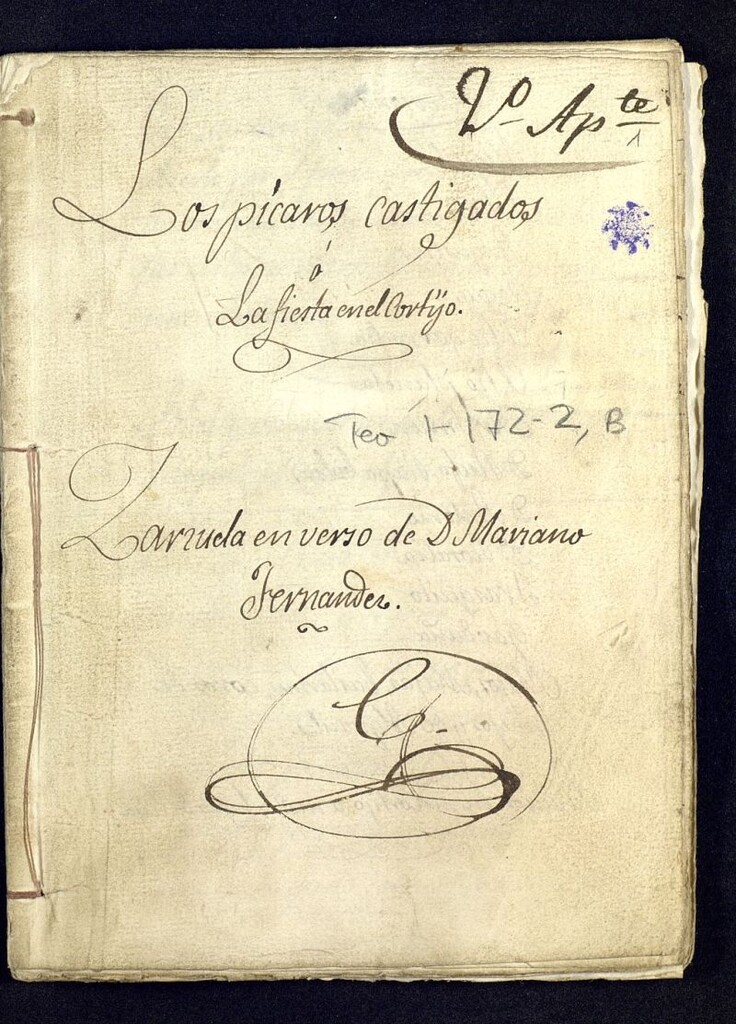 2º Apte
1
Los pícaros castigados
ó
La fiesta en el Cortijo.
Teo 1-172-2, B
Zarzuela en verso de D Mariano
Fernandez.
G.